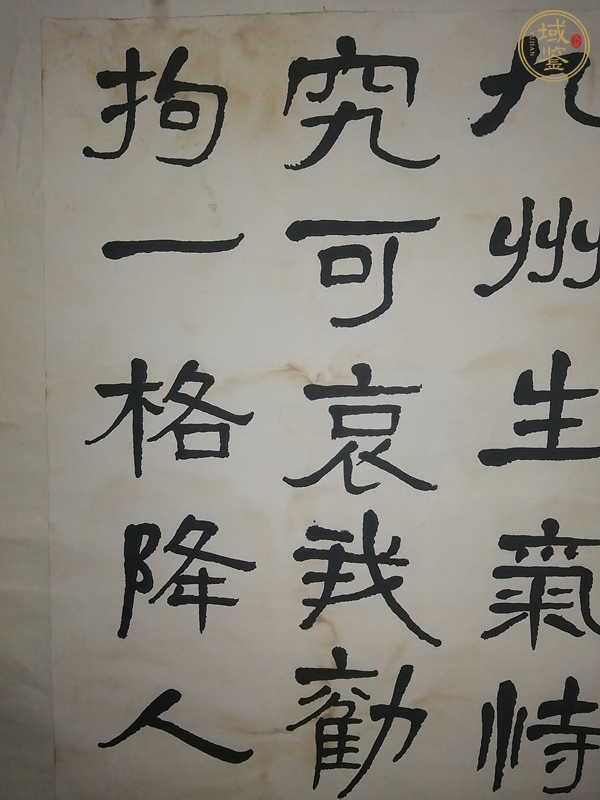 九州生氣恃
究可哀我勸
拘一格降人
域鉴
YUJIAN